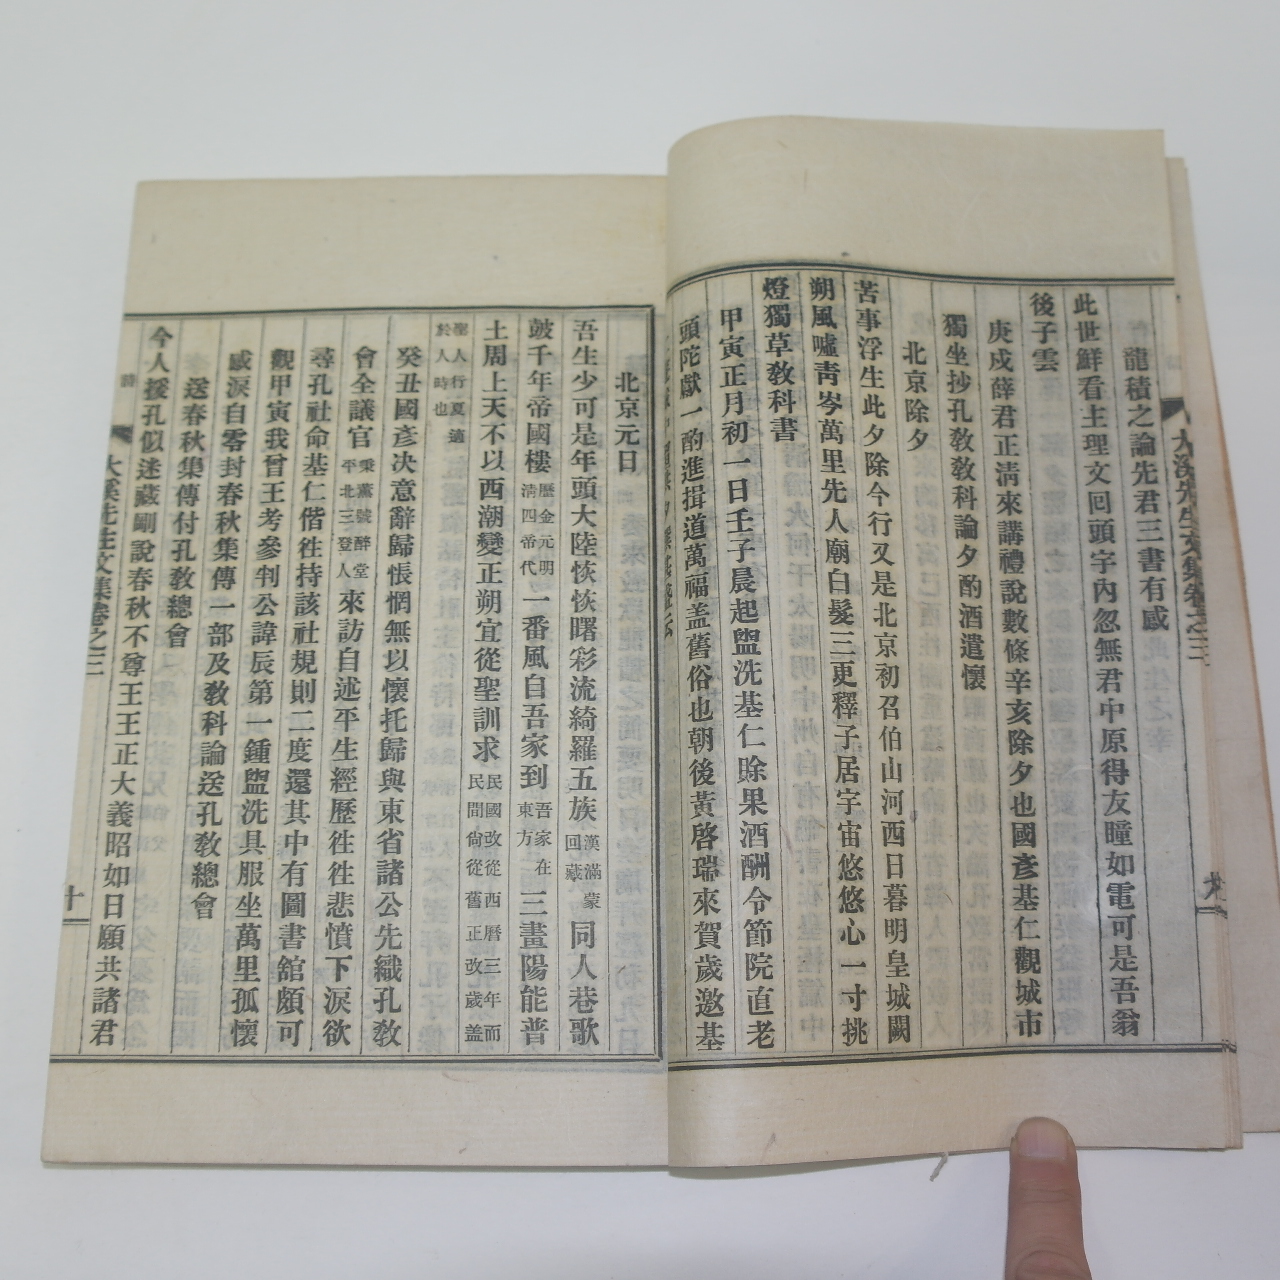 龍積之論先君三書有感
此世鮮看主理文回頭宇內忽無君中原得友瞳如電可是吾翁
後子雲
庚戍薛君正淸來講禮說數條辛亥除夕也國彥基仁觀城市
獨坐抄孔敎敎科論夕酌酒遣懷
北京除夕
苦事浮生此夕除今行又是北京初召伯山河西日暮明皇城闕
朔風噓靑岑萬里先人廟白髮三更釋子居宇宙悠悠心一寸挑
燈獨草敎科書
甲寅正月初一日壬子晨起盥洗基仁賖果酒酬令節院直老
頭陀獻一酌進揖道萬福盖舊俗也朝後黃啓瑞來賀歲邀基
北京元日
吾生少可是年頭大陸恢恢曙彩流綺羅五族漢滿蒙回藏同人巷歌
皷千年帝國樓歷金元明淸四帝代一番風自吾家到吾家在東方三畫陽能普
土周上天不以西潮變正朔宜從聖訓求民國改從西曆三年而民間尙從舊正改歲盖
聖人行夏適於人時也
癸丑國彥决意辭歸悵惘無以懷托歸與東省諸公先織孔敎
會全議官秉薰號醉堂平北三登人來訪自述平生經歷徃徃悲憤下淚欲
尋孔社命基仁偕徃持該社規則二度還其中有圖書舘頗可
觀甲寅我曾王考參判公諱辰第一鍾盥洗具服坐萬里孤懷
感淚自零封春秋集傳一部及敎科論送孔敎總會
送春秋集傳付孔敎總會
今人援孔似迷藏嗣說春秋不尊王王正大義昭如日願共諸君
大溪先生文集卷之三
十